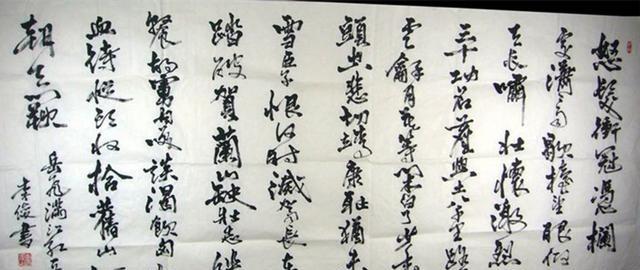 怒髮衝冠憑欄
處瀟瀟雨歇擡望眼仰
天長嘯壯懷激烈
三十功名塵與土八千里路
雲龢月莫等閒白了少年
頭空悲切靖康恥猶未
雪臣子恨何時滅駕長車
踏破賀蘭山缺壯志
餐胡虜肉笑談渴飲匈
血待從頭收拾舊山
朝天闕
岳飛滿江紅
李俊書